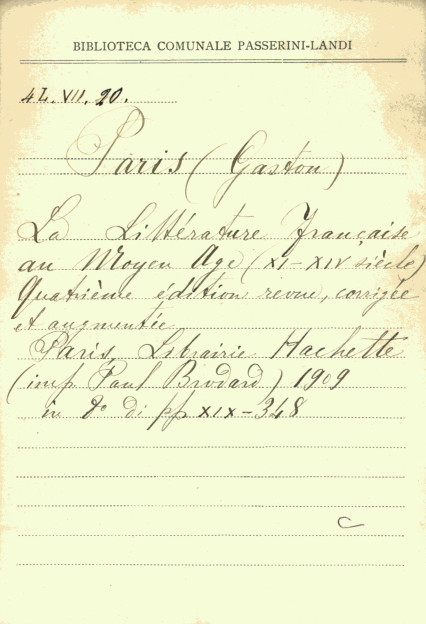 BIBLIOTECA COMUNALE PASSERINI-LANDI
4L. VII. 20.
Paris (Gaston)
La Littérature française
au Moyen Age (XI-XIV siècle)
Quatrième édition revue, corrigée
et augmentée
Paris, Librairie Hachette
(imp Paul Brodard) 1909
in 8° di pp XIX-348
C